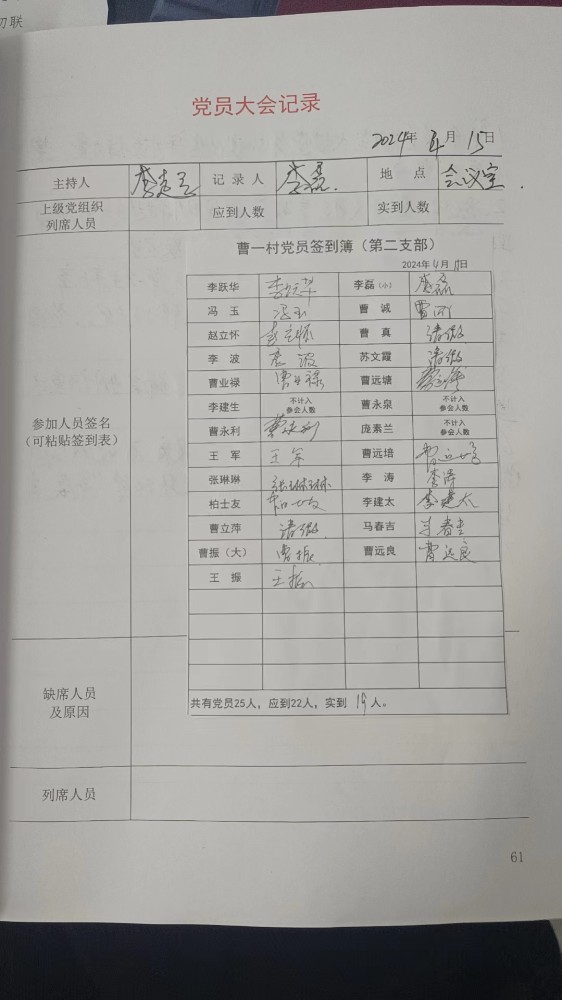 切联
党员大会记录
2024年 4月 15日
主持人 李 记录人 李磊. 地点 会议室.
上级党组织列席人员 应到人数 实到人数
曹一村党员签到簿（第二支部）
2024年4月15日
李跃华 李跃华 李磊（小） 李磊
冯玉 冯玉 曹诚 曹
赵立怀 赵立怀 曹真 请假
李波 李波 苏文霞 请假
曹业禄 曹业禄 曹远塘
李建生 不计入参会人数 曹永泉 不计入参会人数
曹永利 曹永利 庞素兰 不计入参会人数
王军 王军 曹远培 曹远培
张琳琳 张琳琳 李涛 李涛
柏士友 柏士友 李建太 李建太
曹立萍 请假 马春吉 马春吉
曹振（大） 曹振 曹远良 曹远良
王振 王振
参加人员签名
（可粘贴签到表）
共有党员25人，应到22人，实到 19人。
缺席人员及原因
列席人员
61